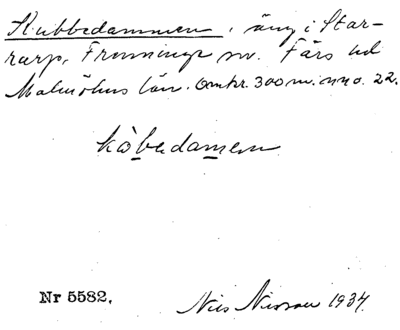 Kubbedammen, äng i Star-
rarp, Frenninge sn. Färs hd
Malmöhus län. Omkr. 300 m. nno. 22.
kåbedamen
Nr 5582.
Nils Nilsson 1934.